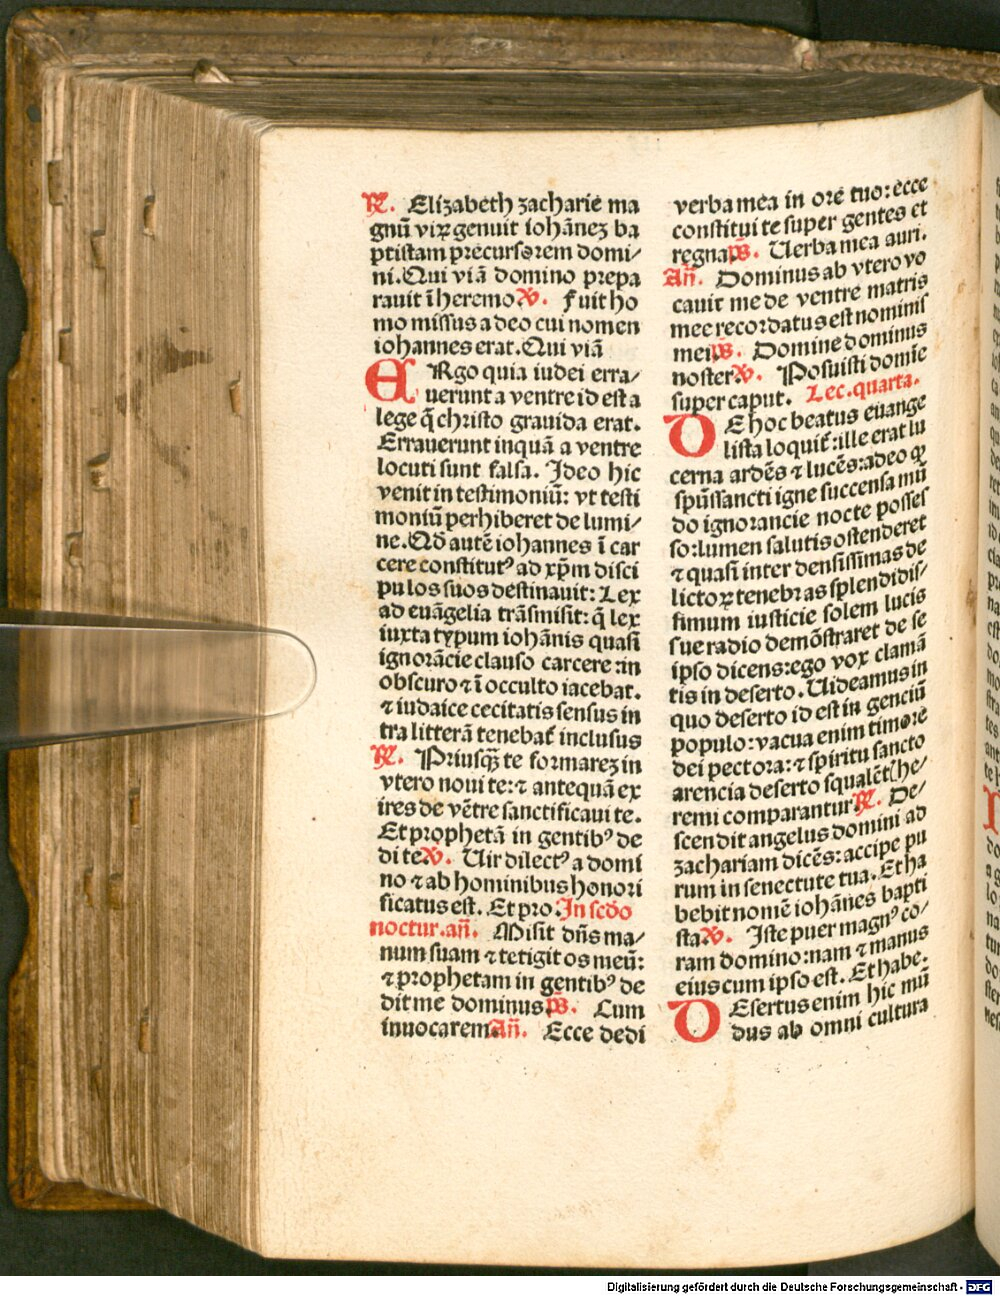 ℟. Elizabeth zacharie ma
gnū viꝝ genuit iohānez ba
ptistam precursorem domi-
ni. Qui viā domino prepa
rauit ī heremo ℣. Fuit ho
mo missus a deo cui nomen
iohannes erat. Qui viā
ERgo quia iudei erra-
uerunt a ventre id est a
lege q̄ christo grauida erat.
Errauerunt inquā a ventre
locuti sunt falsa. Ideo hic
venit in testimoniū: vt testi
moniū perhiberet de lumi-
ne. Qd autē iohannes ī car
cere constitutꝰ ad xp̄m disci
pulos suos destinauit: Lex
ad euāgelia trāsmisit: q̄ lex
iuxta typum iohānis quasi
ignorācie clauso carcere: in
obscuro ⁊ ī occulto iacebat.
⁊ iudaice cecitatis sensus in
tra litterā tenebat̄ inclusus
℟. Priusq̄ te formarez in
vtero noui te: ⁊ antequā ex
ires de vētre sanctificaui te.
Et prophetā in gentibꝰ de
di te ℣. Uir dilectꝰ a domi
no ⁊ ab hominibus honori
ficatus est. Et pro. In scdo
noctur. an̄. Misit dn̄s ma-
num suam ⁊ tetigit os meū:
⁊ prophetam in gentibꝰ de
dit me dominus. ps̄. Cum
inuocarem An̄. Ecce dedi
verba mea in ore tuo: ecce
constitui te super gentes et
regna ps̄. Uerba mea auri.
An̄. Dominus ab vtero vo
cauit me de ventre matris
mee recordatus est nominis
mei ps̄. Domine dominus
noster ℣. Posuisti domīe
super caput. Lec. quarta.
DE hoc beatus euange
lista loquit̄: ille erat lu
cerna ardēs ⁊ lucēs: adeo ꝙ
sp̄ussancti igne succensa mū
do ignorancie nocte posses
so: lumen salutis ostenderet
⁊ quasi inter densissimas de
lictoꝝ tenebras splendidis-
simum iusticie solem lucis
sue radio demōstraret de se
ipso dicens: ego vox clamā
tis in deserto. Uideamus in
quo deserto id est in genciū
populo: vacua enim timore
dei pectora: ⁊ spiritu sancto
arencia deserto squalēti he-
remi comparantur ℟. De-
scendit angelus domini ad
zachariam dicēs: accipe pu
rum in senectute tua. Et ha
bebit nomē iohānes bapti
sta ℣. Iste puer magnꝰ co-
ram domino: nam ⁊ manus
eius cum ipso est. Et habe.
DEsertus enim hic mū
dus ab omni cultura
Digitalisierung gefördert durch die Deutsche Forschungsgemeinschaft - DFG